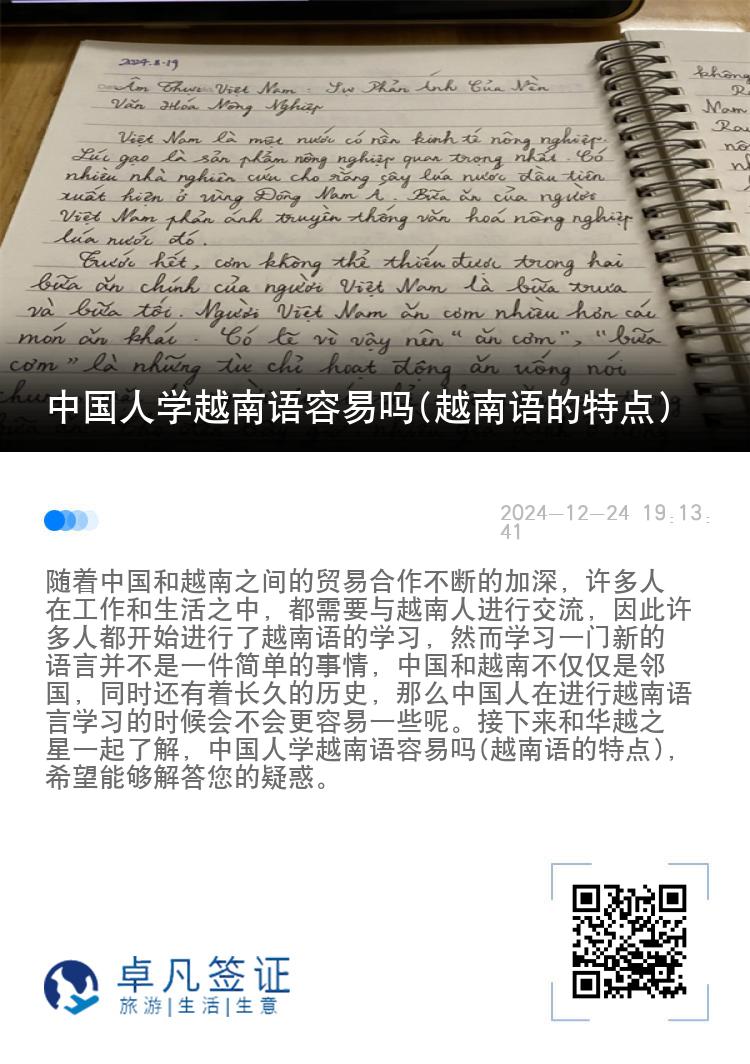 2024.8.19
Ẩm Thực Việt Nam : Sự Phản Ánh Của Nền
Văn Hóa Nông Nghiệp
Việt Nam là một nước có nền kinh tế nông nghiệp.
Lúc gạo là sản phẩm nông nghiệp quan trọng nhất. Có
nhiều nhà nghiên cứu cho rằng cây lúa nước đầu tiên
xuất hiện ở vùng Đông Nam Á. Bữa ăn của người
Việt Nam phản ánh truyền thống văn hoá nông nghiệp
lúa nước đó.
Trước hết, cơm không thể thiếu được trong hai
bữa ăn chính của người Việt Nam là bữa trưa
và bữa tối. Người Việt Nam ăn cơm nhiều hơn các
món ăn khác. Có lẽ vì vậy nên "ăn cơm", "bữa
cơm" là những từ chỉ hoạt động ăn uống nói
chung
không
Nam
中国人学越南语容易吗(越南语的特点)
2024-12-24 19:13:
41
随着中国和越南之间的贸易合作不断的加深，许多人
在工作和生活之中，都需要与越南人进行交流，因此许
多人都开始进行了越南语的学习，然而学习一门新的
语言并不是一件简单的事情，中国和越南不仅仅是邻
国，同时还有着长久的历史，那么中国人在进行越南语
言学习的时候会不会更容易一些呢。接下来和华越之
星一起了解，中国人学越南语容易吗(越南语的特点)，
希望能够解答您的疑惑。
卓凡签证
旅游|生活|生意